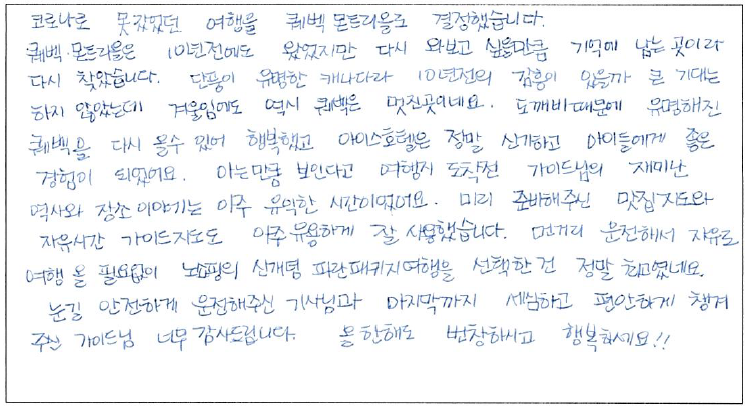 코로나로 못갔었던 여행을 퀘벡 몬트리올로 결정했습니다.
퀘벡·몬트리올은 10년전에도 왔었지만 다시 와보고 싶을만큼 기억에 남는 곳이라
다시 찾았습니다. 단풍이 유명한 캐나다라 10년전의 감흥이 있을까 큰 기대는
하지 않았는데 겨울임에도 역시 퀘벡은 멋진곳이네요. 도깨비때문에 유명해진
퀘벡을 다시 올수 있어 행복했고 아이스호텔은 정말 신기하고 아이들에게 좋은
경험이 되었어요. 아는만큼 보인다고 여행지 도착전 가이드님의 재미난
역사와 장소이야기는 아주 유익한 시간이었어요. 미리 준비해주신 맛집지도와
자유시간 가이드지도도 아주유용하게 잘 사용했습니다. 먼거리 운전해서 자유로
여행 올 필요없이 노쇼핑의 신개념 파란패키지여행을 선택한건 정말 최고였네요.
눈길 안전하게 운전해주신 기사님과 마지막까지 세심하고 편안하게 챙겨
주신 가이드님 너무 감사드립니다. 올한해도 번창하시고 행복하세요!!